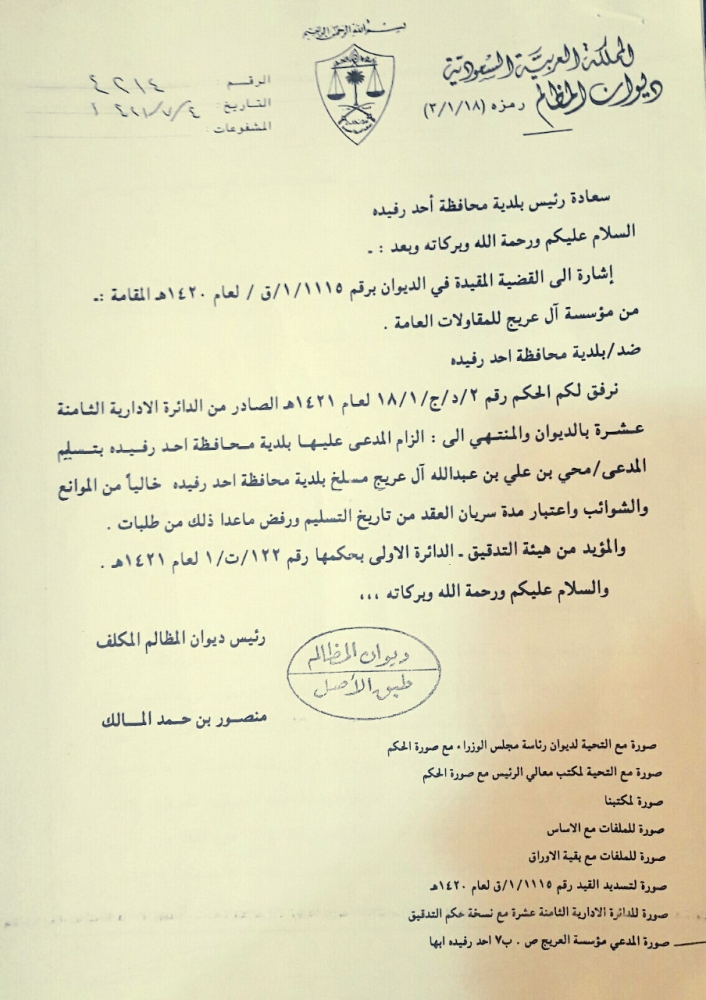 بسم الله الرحمن الرحيم
المملكة العربية السعودية
ديوان المظالم رمزه (٢/١/١٨)
الرقم : ٤٢١٤
التاريخ : ٤/٧/٤٢١ ١
المشفوعات :
سعادة رئيس بلدية محافظة أحد رفيده
السلام عليكم ورحمة الله وبركاته وبعد : ـ
إشارة الى القضية المقيدة في الديوان برقم ١/١١١٥/ق / لعام ١٤٢٠هـ المقامة :ـ
من مؤسسة آل عريج للمقاولات العامة .
ضد/بلدية محافظة احد رفيده
نرفق لكم الحكم رقم ٢/د/ج/١/١٨ لعام ١٤٢١هـ الصادر من الدائرة الادارية الثامنة
عشرة بالديوان والمنتهي الى : الزام المدعى عليها بلدية محافظة احد رفيده بتسليم
المدعى/محي بن علي بن عبدالله آل عريج مسلخ بلدية محافظة احد رفيده خالياً من الموانع
والشوائب واعتبار مدة سريان العقد من تاريخ التسليم ورفض ماعدا ذلك من طلبات .
والمؤيد من هيئة التدقيق ـ الدائرة الاولى بحكمها رقم ١٢٢/ت/١ لعام ١٤٢١هـ .
والسلام عليكم ورحمة الله وبركاته ،،،
رئيس ديوان المظالم المكلف
ديوان المظالم
طبق الأصل
منصور بن حمد المالك
صورة مع التحية لديوان رئاسة مجلس الوزراء مع صورة الحكم
صورة مع التحية لمكتب معالي الرئيس مع صورة الحكم
صورة لمكتبنا
صورة للملفات مع الاساس
صورة للملفات مع بقية الاوراق
صورة لتسديد القيد رقم ١/١١١٥/ق لعام ١٤٢٠هـ
صورة للدائرة الادارية الثامنة عشرة مع نسخة حكم التدقيق
صورة المدعي مؤسسة العريج ص . ب٧ احد رفيده ابها